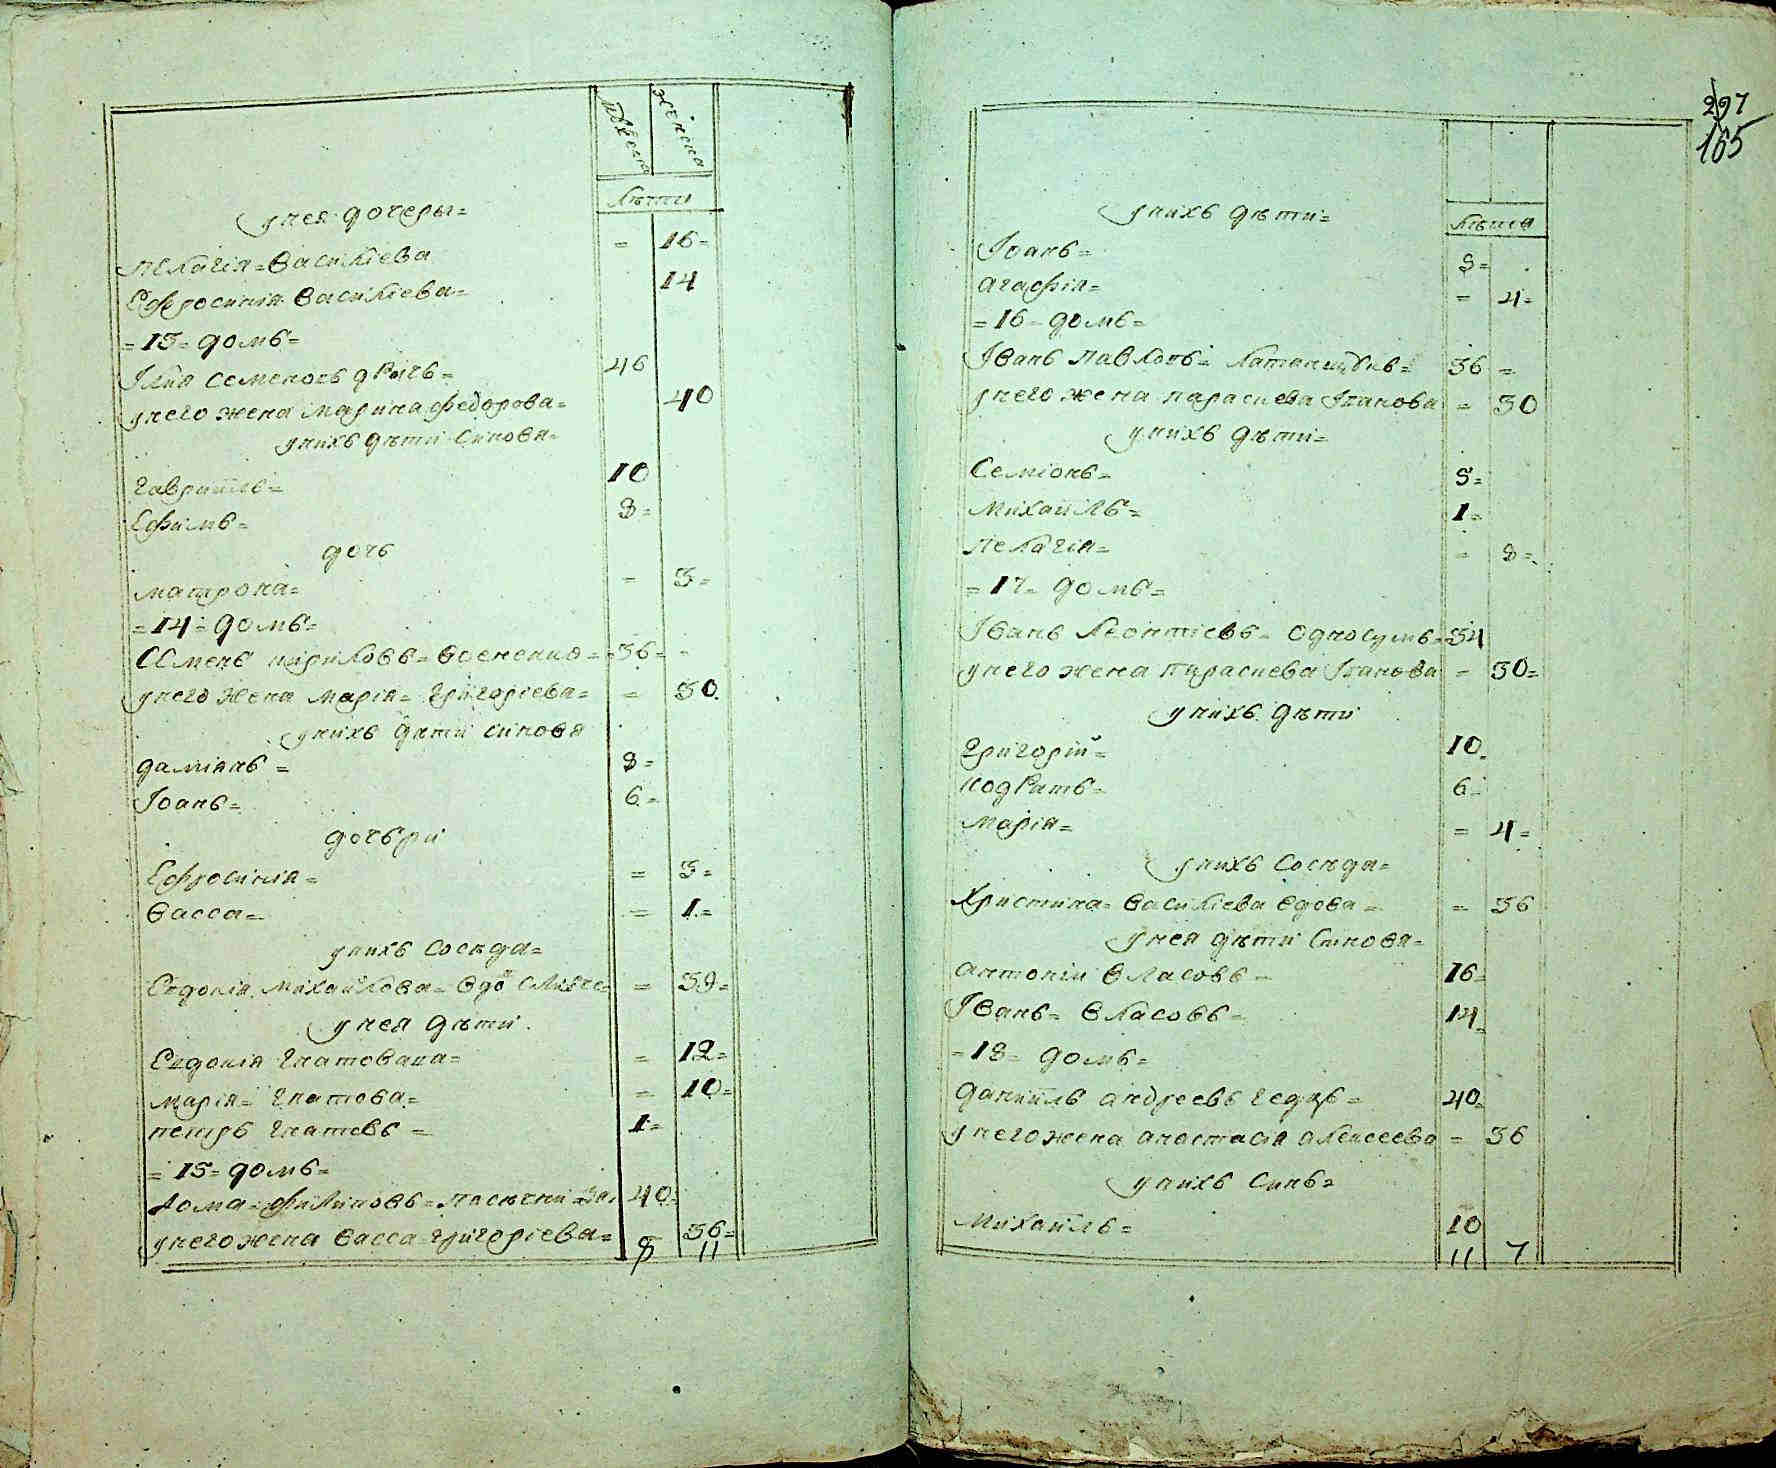 мужеска женска
лѣта
у нея дочеры=
пелагіа= василіева = 16=
Ефросиніа василіева= 14
=13= домъ=
Іліа семеновъ 46
у него жена марина федорова= 40
у нихъ дѣти синова=
гавриилъ= 10
Ефимъ= 8=
дочь
матрона= = 3=
=14= домъ=
Семенъ кириловъ= =36= =
у него жена маріа= григоріева= = 30
у нихъ дѣти синова
даміанъ= 8=
Іоанъ= 6=
дочьри
Ефросиніа= = 3=
васса= = 1=
у нихъ сосѣда=
Евдокіа михайлова= = 39=
у нея дѣти
Евдокіа = 12=
маріа= гнатова= = 10=
петръ гнатовъ= 1=
=15= домъ=
Фома= филиповъ= 40=
у него жена васса григоріева= 36=
8 11
297
165
лѣта
у нихъ дѣти=
Іоанъ= 8=
агафіа= = 4=
=16= домъ=
Іванъ павловъ= 36 =
у него жена параскева Іванова = 30
у нихъ дѣти=
Семіонъ= 8=
михаилъ= 1=
пелагіа= = 8=
=17= домъ=
Іванъ леонтіевъ= односумъ= 34
у него жена параскева Іванова = 30=
у нихъ дѣти
григорій= 10=
кодратъ= 6=
маріа= = 4=
у нихъ сосѣда=
христина= василіева вдова= = 36
у нея дѣти синова=
антоній власовъ= 16=
Іванъ= власовъ= 14=
=18= домъ=
даниилъ андреевъ 40=
у него жена анастасіа алексеева = 36
у нихъ синъ=
михаилъ= 10
11 7